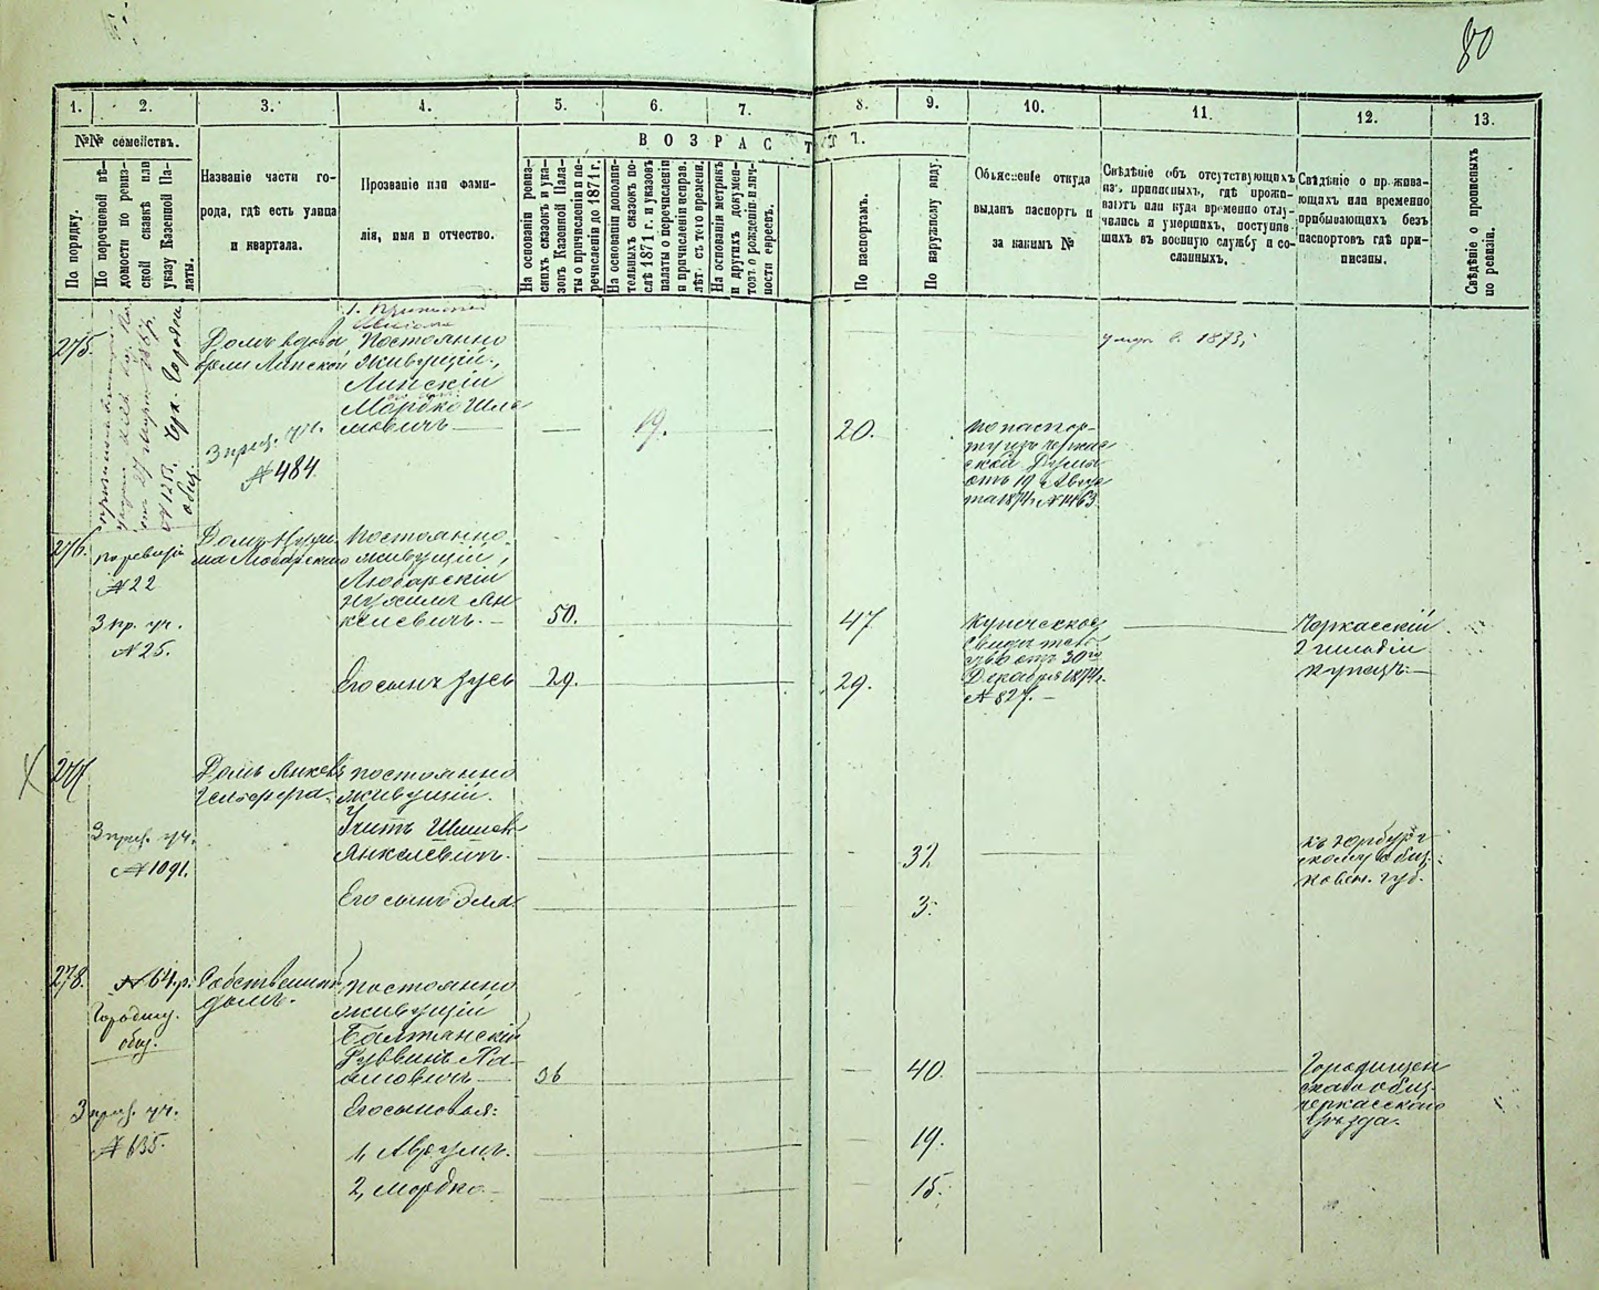 80
1. 2. 3. 4. 5. 6. 7. 8. 9. 10. 11. 12. 13.
№№ семействъ.
По порядку.
По перечневой вѣ-
домости по ревиз-
ской сказкѣ или
указу Казенной Па-
латы.
Названіе части го-
рода, гдѣ есть улица
и квартала.
Прозваніе или фами-
лія, имя и отчество.
ВОЗРАСТЪ.
На основаніи ревиз-
скихъ сказокъ и ука-
зовъ Казенной Пала-
ты о причисленіи и пе-
речисленіи до 1871 г.
На основаніи дополни-
тельныхъ сказокъ по-
слѣ 1871 г. и указовъ
палаты о перечисленіи
и причисленіи исправ.
лѣт. съ того времени.
На основаніи метрикъ
и другихъ докумен-
товъ о рожденіи и лич-
ности евреевъ.
По паспортамъ.
По наружному виду.
Объясненіе откуда
выданъ паспортъ и
за какимъ №
Свѣдѣніе объ отсутствующихъ
изъ приписныхъ, гдѣ прожи-
ваютъ или куда временно отлу-
чились и умершихъ, поступив-
шихъ въ военную службу и со-
сланныхъ.
Свѣдѣніе о прожива-
ющихъ или временно
прибывающихъ безъ
паспортовъ гдѣ при-
писаны.
Свѣдѣніе о прописныхъ
по ревизіи.
275.
№ 125. Черк. Городск.
общ.
Домъ вдовы
Липской
3 приз. уч.
№ 484
Постоянно
живущій.
Липскій
Мордко Шле-
мовичъ —
— 19. 20.
по паспор-
ту изъ черкас-
ской Думы
отъ 19 Авгус-
та 1874 г. № 1463
1873,
276.
по ревизіи
№ 22
3 пр. уч.
№ 25.
Домъ Нухи-
ма Любарскаго
Постоянно
живущій,
Любарскій
Нухимъ Ян-
келевичъ. —
50. 47
Купеческое
Свидѣтель-
ство отъ 30го
Декабря 1874 г.
№ 827. —
Черкасскій
2 гильдіи
купецъ. —
Его сынъ Зусь
29. 29.
277
3 приз. уч.
№ 1091.
Домъ Янкеля
постоянно
живущій.
Янкелевичъ.
32
къ Юрбург-
скому общ.
Ковен. губ.
Его сынъ
3.
278.
№ 64. р.
Городищ.
общ.
3 приз. уч.
№ 635.
Собственный
домъ.
постоянно
живущій
Балтянскій
Рувинъ Ха-
имовичъ —
36 40
Городищен
скаго общ.
черкасскаго
Уѣзда.
Его сыновья:
1, Аврумъ.
19.
2, Мордко. —
15.